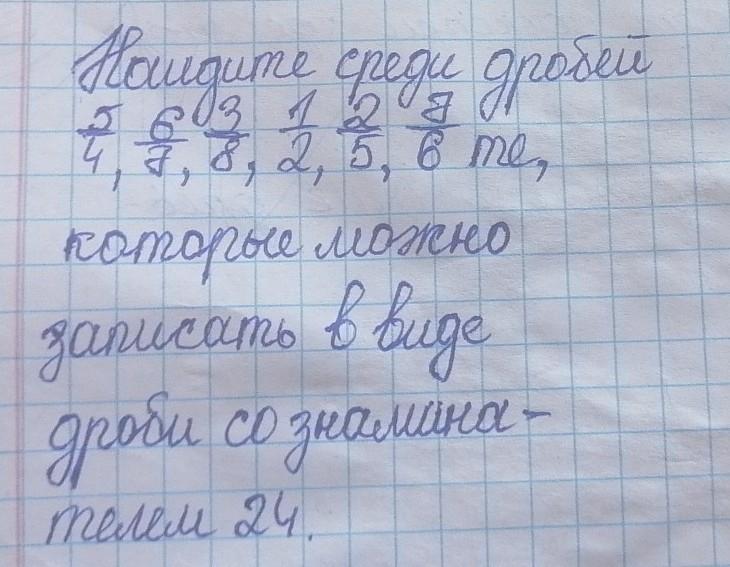 Найдите среди дробей
5/4, 6/7, 3/8, 1/2, 2/5, 7/6 те,
которые можно
записать в виде
дроби со знамина-
телем 24.